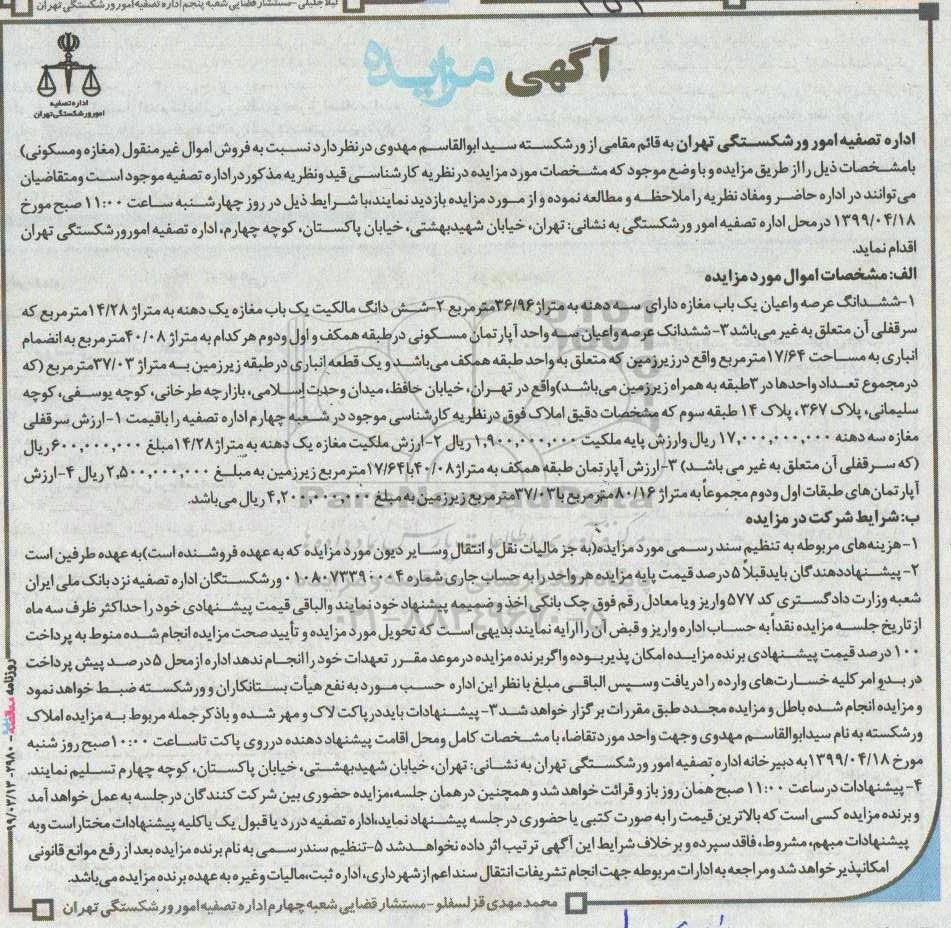 لیلا جلیلی - مستشار قضایی شعبه پنجم اداره تصفیه امور ورشکستگی تهران
آگهی مزایده
اداره تصفیه
امور ورشکستگی تهران
اداره تصفیه امور ورشکستگی تهران به قائم مقامی از ورشکسته سید ابوالقاسم مهدوی در نظر دارد نسبت به فروش اموال غیر منقول (مغازه و مسکونی)
بامشخصات ذیل را از طریق مزایده و با وضع موجود که مشخصات مورد مزایده در نظریه کارشناسی قید و نظریه مذکور در اداره تصفیه موجود است و متقاضیان
می توانند در اداره حاضر و مفاد نظریه را ملاحظه و مطالعه نموده و از مورد مزایده بازدید نمایند، با شرایط ذیل در روز چهارشنبه ساعت ۱۱:۰۰ صبح مورخ
۱۳۹۹/۰۴/۱۸ در محل اداره تصفیه امور ورشکستگی به نشانی: تهران، خیابان شهیدبهشتی، خیابان پاکستان، کوچه چهارم، اداره تصفیه امورورشکستگی تهران
اقدام نماید.
الف: مشخصات اموال مورد مزایده
۱-ششدانگ عرصه واعیان یک باب مغازه دارای سه دهنه به متراژ ۳۶/۹۶مترمربع ۲-شش دانگ مالکیت یک باب مغازه یک دهنه به متراژ ۱۴/۲۸مترمربع که
سرقفلی آن متعلق به غیر می باشد ۳- ششدانک عرصه واعیان سه واحد آپارتمان مسکونی در طبقه همکف و اول ودوم هر کدام به متراژ ۴۰/۰۸مترمربع به انضمام
انباری به مساحت ۱۷/۶۴مترمربع واقع درزیرزمین که متعلق به واحد طبقه همکف می‌باشد و یک قطعه انباری در طبقه زیرزمین به متراژ ۳۷/۰۳مترمربع (که
در مجموع تعداد واحدها در ۳طبقه به همراه زیرزمین می‌باشد)واقع در تهران، خیابان حافظ، میدان وحدت اسلامی، بازارچه طرخانی، کوچه یوسفی، کوچه
سلیمانی، پلاک ۳۶۷، پلاک ۱۴ طبقه سوم که مشخصات دقیق املاک فوق در نظریه کارشناسی موجود در شعبه چهارم اداره تصفیه را باقیمت ۱-ارزش سرقفلی
مغازه سه دهنه ۱۷,۰۰۰,۰۰۰,۰۰۰ ریال وارزش پایه ملکیت ۱,۹۰۰,۰۰۰,۰۰۰ ریال ۲-ارزش ملکیت مغازه یک دهنه به متراژ ۱۴/۲۸مبلغ ۶۰۰,۰۰۰,۰۰۰ ریال
(که سرقفلی آن متعلق به غیر می باشد) ۳-ارزش آپارتمان طبقه همکف به متراژ ۴۰/۰۸با۱۷/۶۴مترمربع زیرزمین به مبلغ ۲,۵۰۰,۰۰۰,۰۰۰ ریال ۴-ارزش
آپارتمان‌های طبقات اول ودوم مجموعاً به متراژ ۸۰/۱۶مترمربع با ۳۷/۰۳مترمربع زیرزمین به مبلغ ۴,۲۰۰,۰۰۰,۰۰۰ ریال می‌باشد.
ب: شرایط شرکت در مزایده
۱-هزینه‌های مربوطه به تنظیم سند رسمی مورد مزایده(به جز مالیات نقل و انتقال وسایر دیون مورد مزایده که به عهده فروشنده است)به عهده طرفین است
۲- پیشنهاددهندگان بایدقبلاً ۵ درصد قیمت پایه مزایده هر واحد را به حساب جاری شماره ۰۱۰۸۰۷۳۳۹۰۰۴ ورشکستگان اداره تصفیه نزد بانک ملی ایران
شعبه وزارت دادگستری کد ۵۷۷ واریز ویا معادل رقم فوق چک بانکی اخذ و ضمیمه پیشنهاد خود نمایند والباقی قیمت پیشنهادی خود را حداکثر ظرف سه ماه
از تاریخ جلسه مزایده نقداً به حساب اداره واریز و قبض آن را ارایه نمایند بدیهی است که تحویل مورد مزایده و تأیید صحت مزایده انجام شده منوط به پرداخت
۱۰۰ درصد قیمت پیشنهادی برنده مزایده امکان پذیر بوده واگر برنده مزایده در موعد مقرر تعهدات خود را انجام ندهد اداره از محل ۵ درصد پیش پرداخت
در بدو امر کلیه خسارت‌های وارده را دریافت وسپس الباقی مبلغ با نظر این اداره حسب مورد به نفع هیأت بستانکاران و ورشکسته ضبط خواهد نمود
و مزایده انجام شده باطل و مزایده مجدد طبق مقررات برگزار خواهد شد ۳- پیشنهادات باید در پاکت لاک و مهر شده و با ذکر جمله مربوط به مزایده املاک
ورشکسته به نام سید ابوالقاسم مهدوی وجهت واحد مورد تقاضا، با مشخصات کامل ومحل اقامت پیشنهاد دهنده در روی پاکت تا ساعت ۱۰:۰۰صبح روز شنبه
مورخ ۱۳۹۹/۰۴/۱۸به دبیرخانه اداره تصفیه امور ورشکستگی تهران به نشانی: تهران، خیابان شهیدبهشتی، خیابان پاکستان، کوچه چهارم تسلیم نمایند.
۴- پیشنهادات در ساعت ۱۱:۰۰ صبح همان روز باز و قرائت خواهد شد و همچنین در همان جلسه، مزایده حضوری بین شرکت کنندگان در جلسه به عمل خواهد آمد
و برنده مزایده کسی است که بالاترین قیمت را به صورت کتبی یا حضوری در جلسه پیشنهاد نماید، اداره تصفیه در رد یا قبول یک یا کلیه پیشنهادات مختار است و به
پیشنهادات مبهم، مشروط، فاقد سپرده و برخلاف شرایط این آگهی ترتیب اثر داده نخواهد شد ۵-تنظیم سند رسمی به نام برنده مزایده بعد از رفع موانع قانونی
امکانپذیر خواهد شد و مراجعه به ادارات مربوطه جهت انجام تشریفات انتقال سند اعم از شهرداری، اداره ثبت، مالیات وغیره به عهده برنده مزایده می باشد.
محمد مهدی قزلسفلو - مستشار قضایی شعبه چهارم اداره تصفیه امور ورشکستگی تهران
روزنامه - ۲۹۸۰ - ۹۹/۰۳/۱۳
ParsNamadData
۰۲۱-۸۸۳۴۹۶۷۰-۵